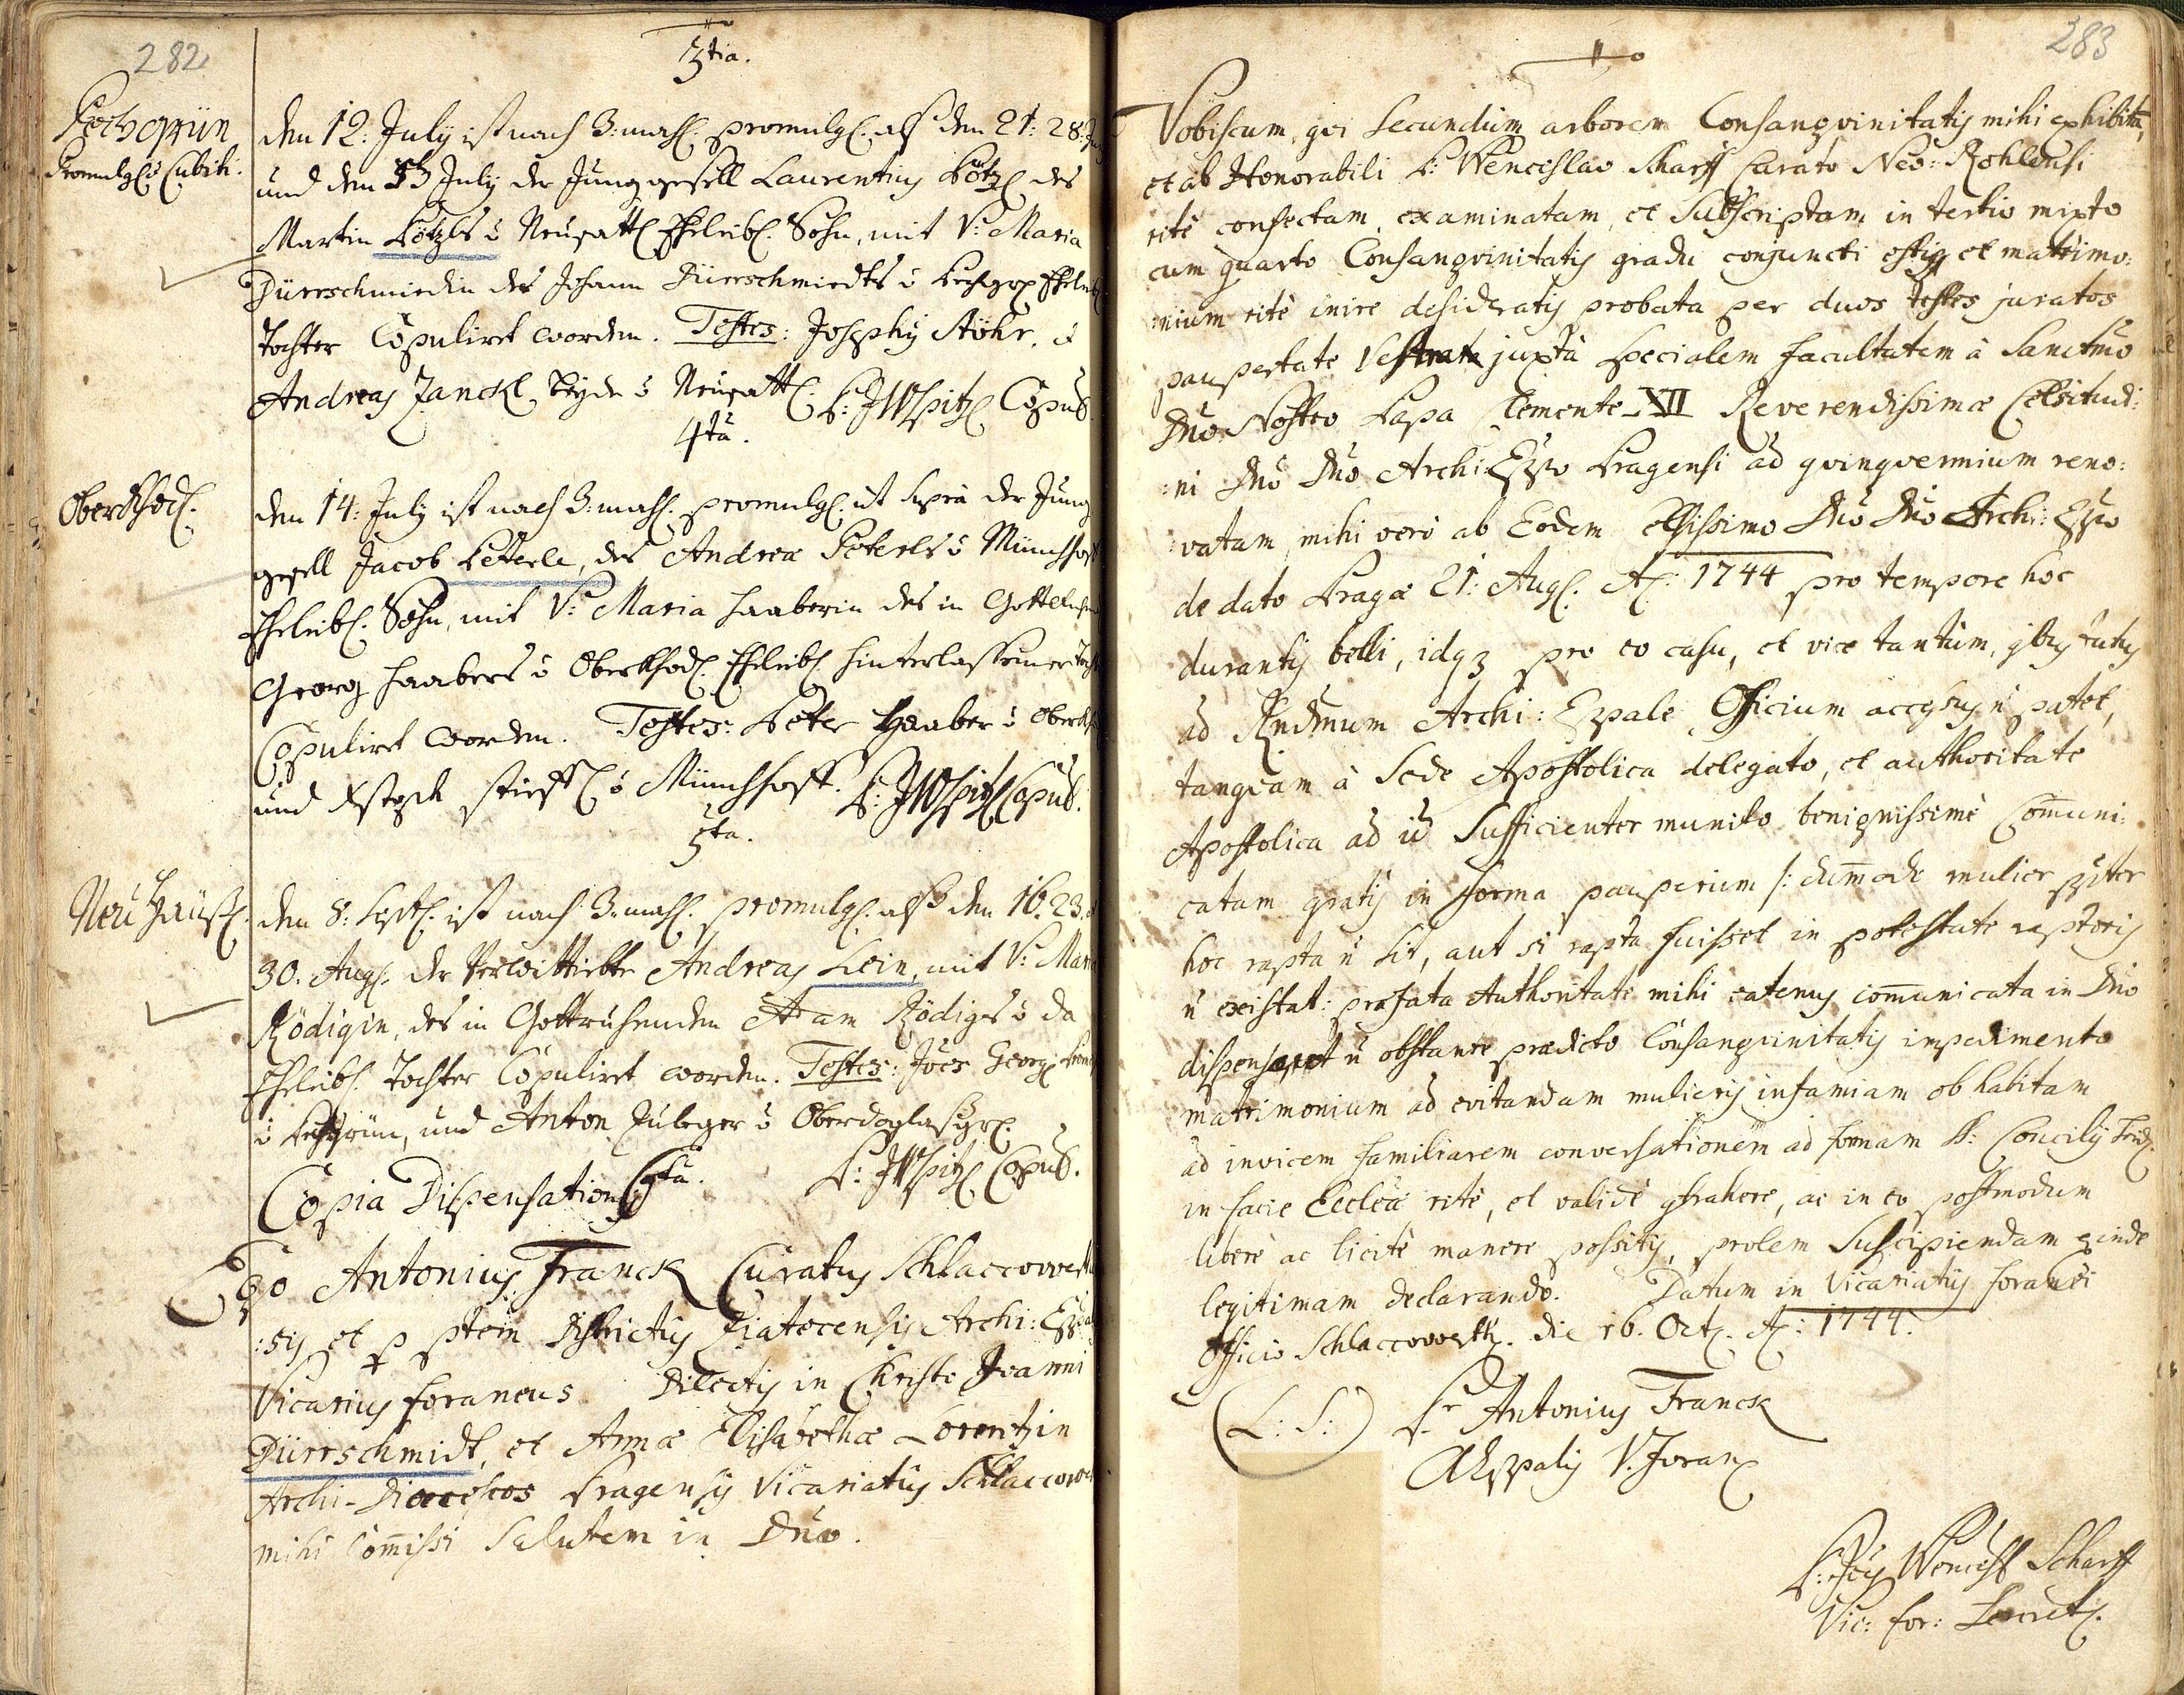 282
3tia.
Promulg: Cubiti.
den 12: July ist nach 3:mahl. promulg. alß den 21: 28:
und den July der Junggesell Laurentius Pötzl des
Martin Pötzls Ehleibl. Sohn, mit V: Maria
Dürrschmiedin des Johann Dürrschmiedts
Tochter Copuliret worden. Testes: Josephus Stöhr,
Andreas Janckl, beyde P: JWSpitzl Copus.
4ta.
Oberkhod.
den 14: July ist nach 3:mahl. promulg. ut supra der Jung
gesell Jacob Peterle, des Andreæ Peterls Münchhoff
Ehleibl. Sohn, mit V: Maria Haaberin des in Gott
Georg Haabers Oberkhod. Ehleibl. hinterlassener
Copuliret worden. Testes: Peter Haaber
und Münchhoff. P: JWSpitzl Copus.
5ta.
Neu Hauß.
den 8: Sept. ist nach 3:mahl. promulg. alß den 16. 23.
30. Aug. der Verwittibte Andreas Lein, mit V: Maria
Rödigin, des in Gottruhenden Adam Rödigs da
Ehleibl. Tochter Copuliret worden. Testes: Joës Georg
und Anton Zuleger
P: JWSpitzl Copus.
6ta.
Copia Dispensationis
Ego Antonius Franck Curatus Schlaccowerth
:sis et p ptem Districtus Ziatecensis Archi: Eppalis
Vicarius foraneus Dilectis in Christo Joanni
Dürrschmidt, et Annæ Elisabethæ Lorentzin
Archi-Dioeceseos Pragensis Vicariatus Schlaccow
mihi Com̄issi Salutem in Dno.
283
Vobiscum, qui secundum arborem Consanguinitatis mihi exhibitā,
et ab Honorabili P: Wencislao Scharff Curato Neo: Rohlensi
ritè confectam, examinatam, et subscriptam in tertio mixto
cum quarto Consanguinitatis gradu conjuncti estis et matrimo:
:nium ritè inire desideratis probata per duos testes juratos
paupertate Vestra juxtà specialem facultatem à Sanctmo
Dno Nostro Papa Clemente XII Reverendissimæ Celsitudi:
:ni Dno Dno Archi: Eppo Pragensi ad quinquennium reno:
:vatam, mihi verò ab Eodem Celsissimo Dno Dno Archi: Eppo
de dato Pragæ 21: Aug. A: 1744 pro tempore hoc
durantis belli, idq3 pro eo casu, et vice tantùm, qbus tutus
ad Rndmum Archi: Eppale Officium accessus n̄ patet,
tanquam à Sede Apostolica delegato, et authoritate
Apostolica ad id sufficienter munito benignissimè Com̄uni:
catam gratis in forma pauperum /: dum̄odo mulier ppter
hoc rapta n̄ sit, aut si rapta fuisset in potestate raptoris
n̄ existat: præfata Authoritate mihi eatenus com̄unicata in Dno
dispenso, ut n̄ obstante prædicto Consanguinitatis impedimento
matrimonium ad evitandam mulieris infamiam ob habitam
ad invicem familiarem conversationem ad formam S: Concilij Trid.
in facie Ecclæ ritè, et validè gtrahere, ac in eo postmodum
liberè ac licitè manere possitis, prolem suscipiendam exinde
legitimam declarando. Datum in Vicariatus foranei
Officio Schlaccowerth. die 16. Oct. A: 1744.
(L: S:) Pr Antonius Franck
AEppalis V. Foran
P: Joës Wencesl Scharff
Vic: for: Secret.